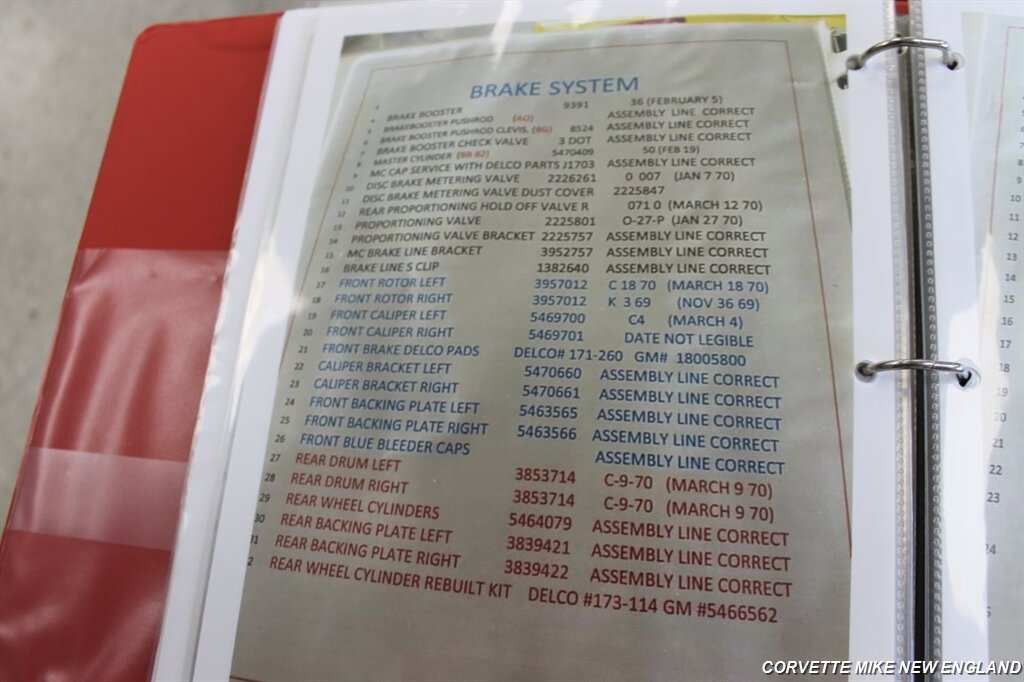 BRAKE SYSTEM
3 BRAKE BOOSTER 9391 36 (FEBRUARY 5)
4 BRAKEBOOSTER PUSHROD (AO) ASSEMBLY LINE CORRECT
5 BRAKE BOOSTER PUSHROD CLEVIS. (BG) 8524 ASSEMBLY LINE CORRECT
6 BRAKE BOOSTER CHECK VALVE 3 DOT ASSEMBLY LINE CORRECT
7 MASTER CYLINDER (BB B2) 5470409 50 (FEB 19)
8 MC CAP SERVICE WITH DELCO PARTS J1703 ASSEMBLY LINE CORRECT
9 DISC BRAKE METERING VALVE 2226261 0 007 (JAN 7 70)
10 DISC BRAKE METERING VALVE DUST COVER 2225847
11 REAR PROPORTIONING HOLD OFF VALVE R 071 0 (MARCH 12 70)
12 PROPORTIONING VALVE 2225801 O-27-P (JAN 27 70)
13 PROPORTIONING VALVE BRACKET 2225757 ASSEMBLY LINE CORRECT
14 MC BRAKE LINE BRACKET 3952757 ASSEMBLY LINE CORRECT
15 BRAKE LINE S CLIP 1382640 ASSEMBLY LINE CORRECT
16 FRONT ROTOR LEFT 3957012 C 18 70 (MARCH 18 70)
17 FRONT ROTOR RIGHT 3957012 K 3 69 (NOV 36 69)
18 FRONT CALIPER LEFT 5469700 C4 (MARCH 4)
19 FRONT CALIPER RIGHT 5469701 DATE NOT LEGIBLE
20 FRONT BRAKE DELCO PADS DELCO# 171-260 GM# 18005800
21 CALIPER BRACKET LEFT 5470660 ASSEMBLY LINE CORRECT
22 CALIPER BRACKET RIGHT 5470661 ASSEMBLY LINE CORRECT
23 FRONT BACKING PLATE LEFT 5463565 ASSEMBLY LINE CORRECT
24 FRONT BACKING PLATE RIGHT 5463566 ASSEMBLY LINE CORRECT
25 FRONT BLUE BLEEDER CAPS ASSEMBLY LINE CORRECT
26 REAR DRUM LEFT 3853714 C-9-70 (MARCH 9 70)
27 REAR DRUM RIGHT 3853714 C-9-70 (MARCH 9 70)
28 REAR WHEEL CYLINDERS 5464079 ASSEMBLY LINE CORRECT
29 REAR BACKING PLATE LEFT 3839421 ASSEMBLY LINE CORRECT
30 REAR BACKING PLATE RIGHT 3839422 ASSEMBLY LINE CORRECT
REAR WHEEL CYLINDER REBUILT KIT DELCO #173-114 GM #5466562
CORVETTE MIKE NEW ENGLAND